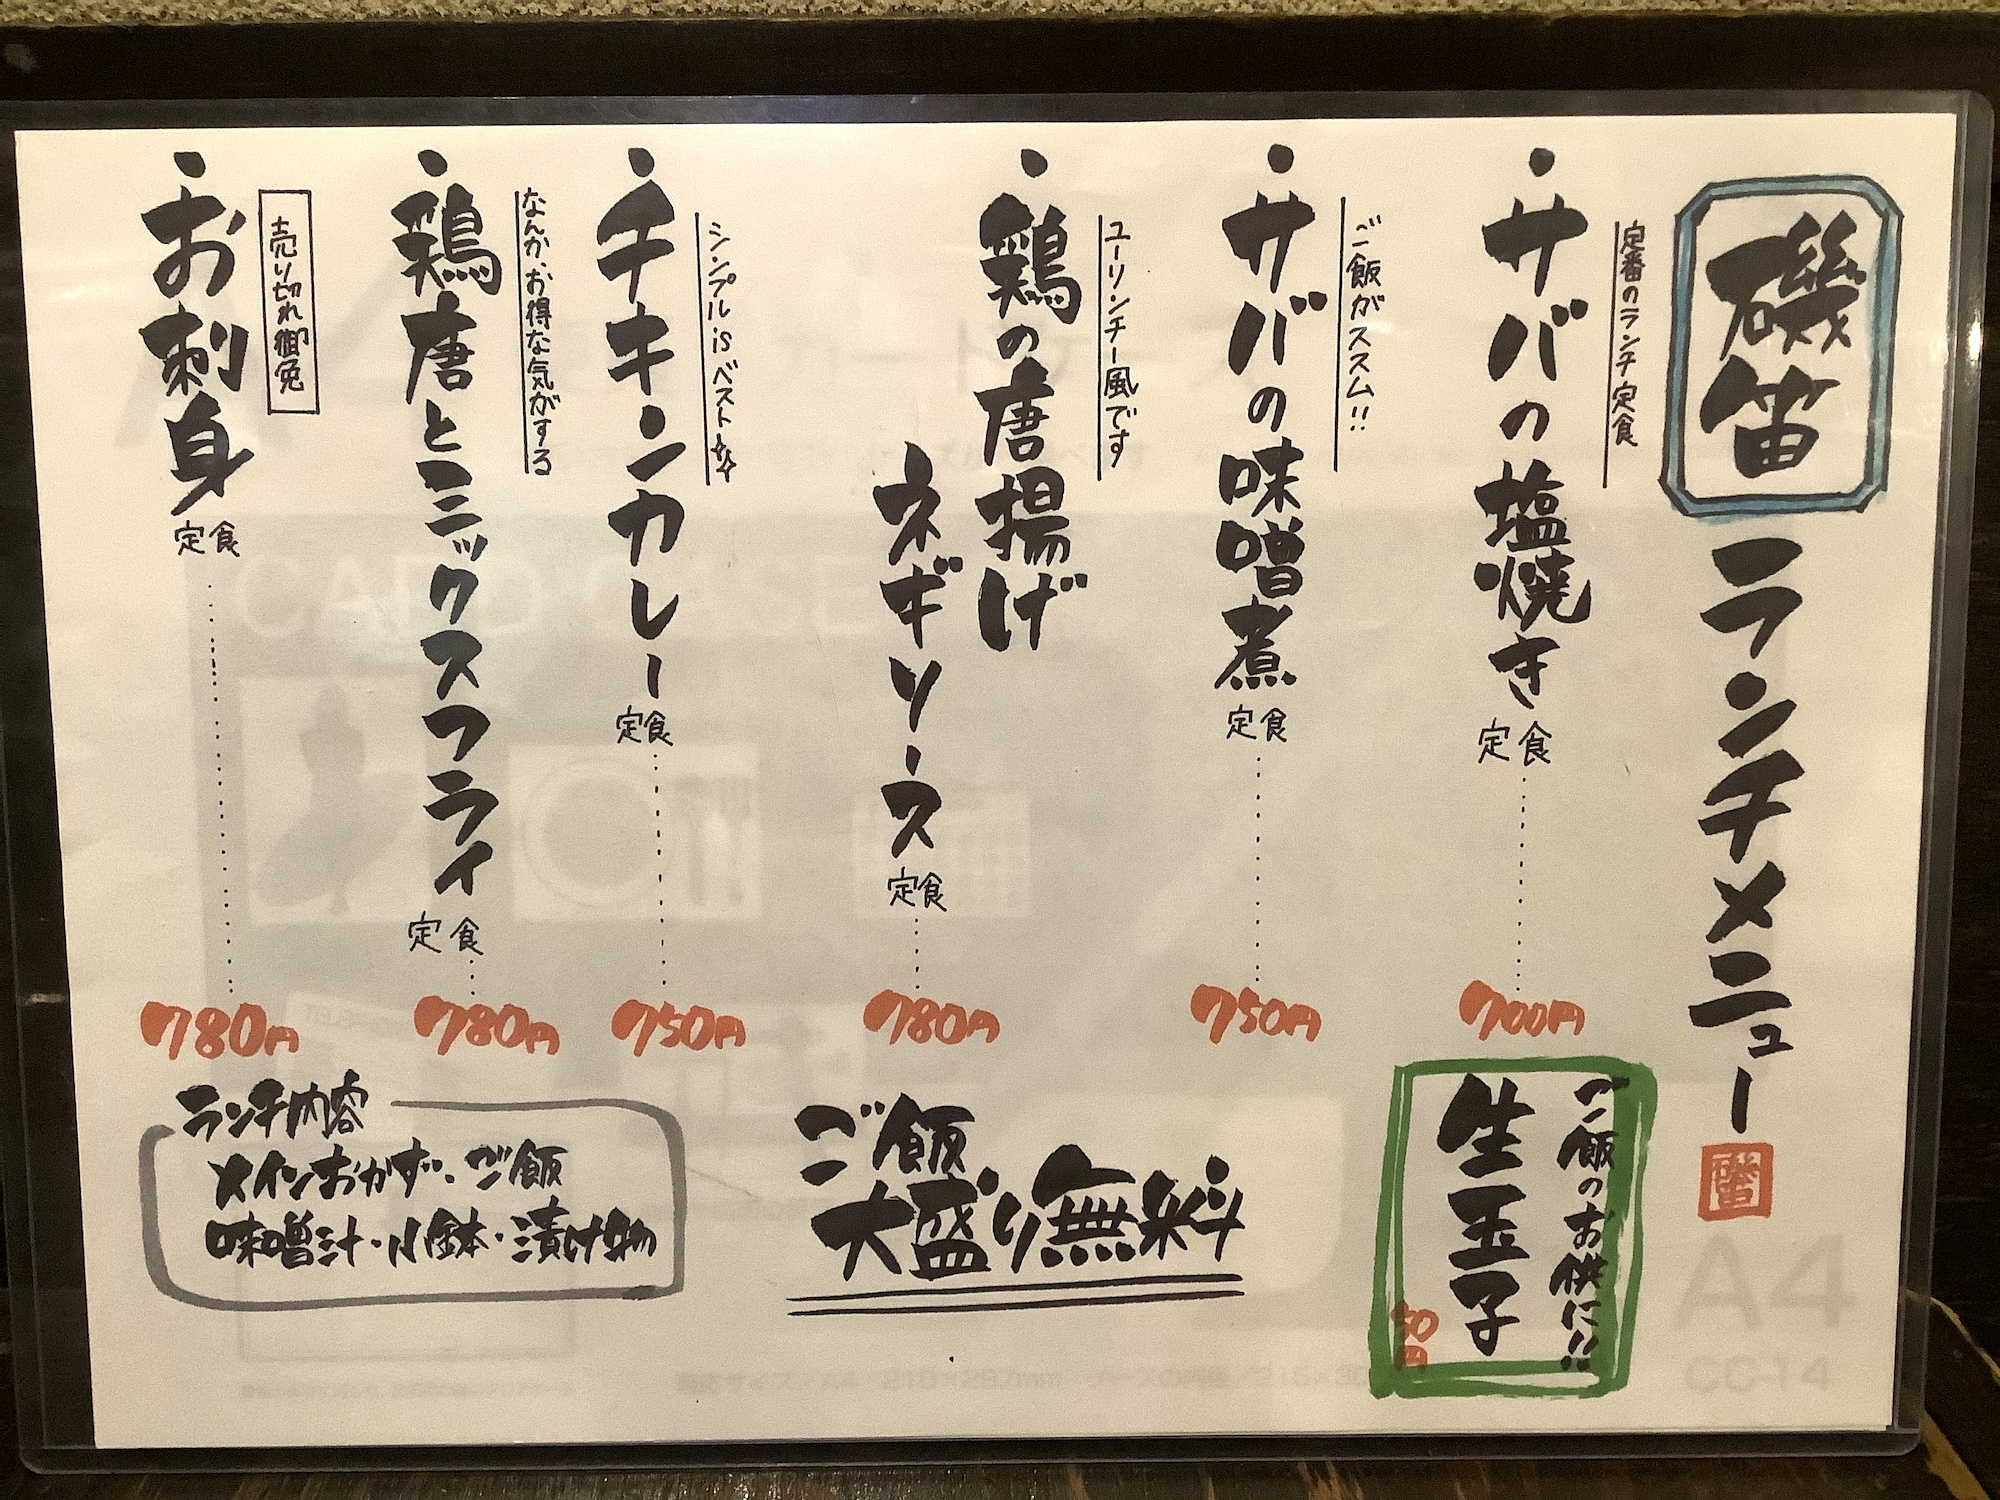 磯笛 ランチメニュー
定番のランチ定食
・サバの塩焼き定食 700円
ご飯がススム!!
・サバの味噌煮定食 750円
ユーリンチー風です
・鶏の唐揚げ
ネギソース定食 780円
シンプルisベスト☆☆
・チキンカレー定食 750円
なんか、お得な気がする
・鶏唐とミックスフライ定食 780円
売り切れ御免
・お刺身定食 780円
ご飯のお供に!!
生玉子
50円
ご飯
大盛り無料
ランチ内容
メインおかず・ご飯
味噌汁・小鉢・漬け物
A4
CC-14